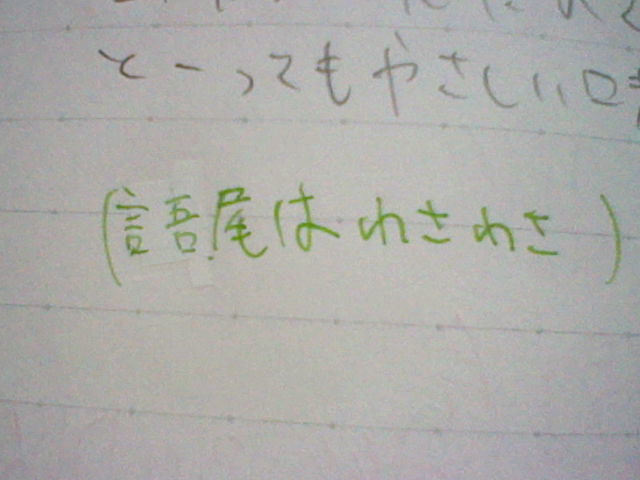 とーってもやさしい口
(語尾はわさわさ)